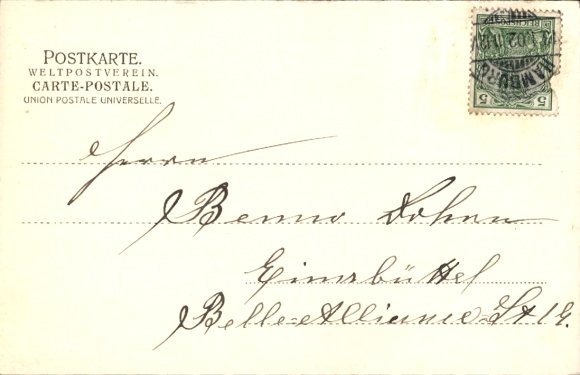 POSTKARTE.
WELTPOSTVEREIN.
CARTE-POSTALE.
UNION POSTALE UNIVERSELLE.
HAMBURG
5 5
Herrn
Benno Dohrn
Eimsbüttel
Belle-Alliance-St